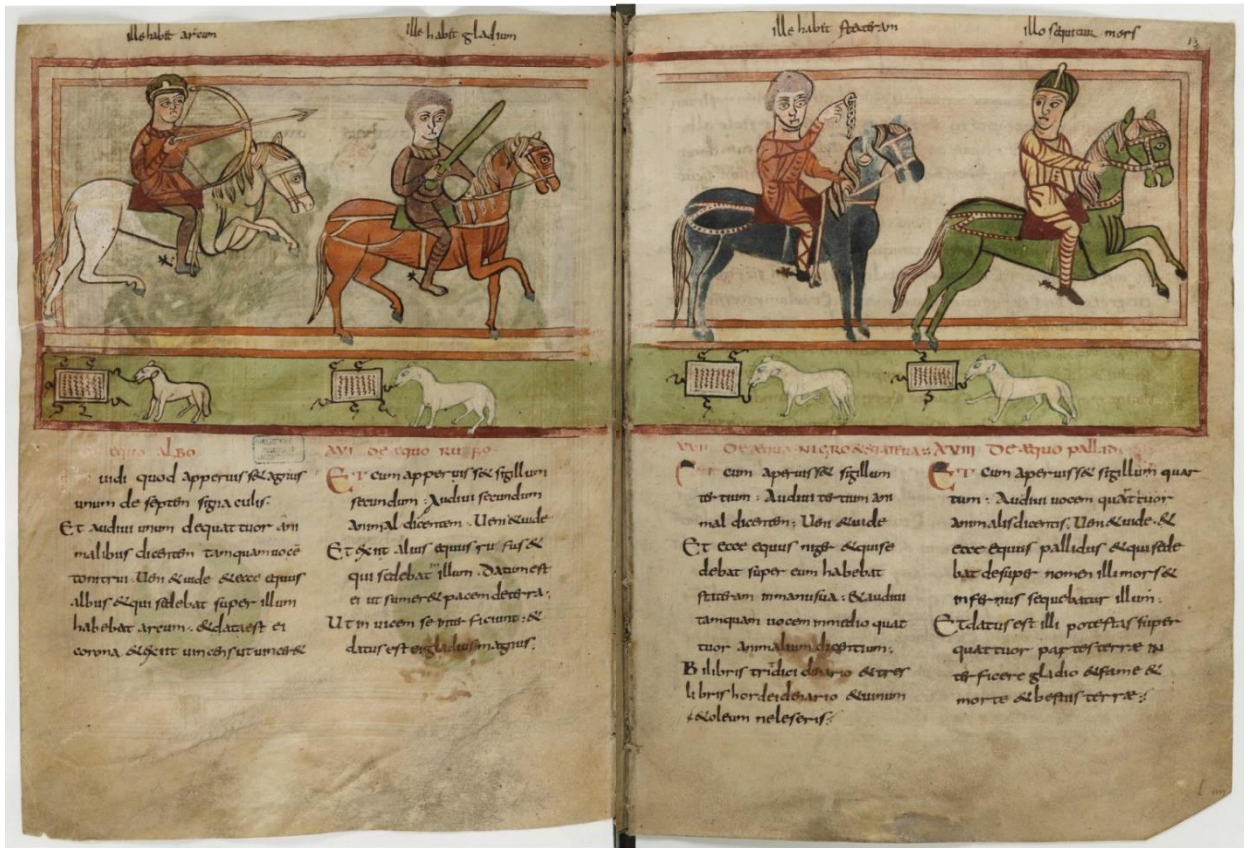 ille habet arcum
ille habet gladium
equo albo
uidi quod apperuisset agnus
unum de septem signaculis.
Et audiui unum dequattuor ani
malibus dicentem tamquam uocē
tonitrui. Ueni &uide &ecce equus
albus &qui sedebat super illum
habebat arcum. &data est ei
corona. &exiuit uincens ut uincer&
XVI DE equo RUFO
Et cum apperuiss& sigillum
secundum. Audiui secundum
animal dicentem. Ueni &uide
Et exiit alius equus rufus &
qui sedebat illum. Datum est
ei ut sumer& pacem de terra.
Ut inuicem se interficiunt. &
datus est ei gladius magnus.
ille habet stateram
illo sequitur mors
13
XVII DE equo NIGRO & statera
Et cum aperuiss& sigillum
tertium. Audiui tertium ani
mal dicentem. Ueni &uide
Et ecce equus niger &qui se
debat super eum habebat
stateram in manu sua. &audiui
tamquam uocem in medio quat
tuor animalium dicentium.
Bilibris tritici denario &tres
libris hordei denario &uinum
&oleum ne leseris.
XVIII DE equo pallido
Et cum aperuiss& sigillum quar
tum. Audiui uocem quattuor
animalis dicentis. Ueni &uide. &
ecce equus pallidus &qui sede
bat desuper nomen illi mors &
infernus sequebatur illum.
Et datus est illi potestas super
quattuor partes terrae in
terficere gladio &fame &
morte &bestiis terrae.